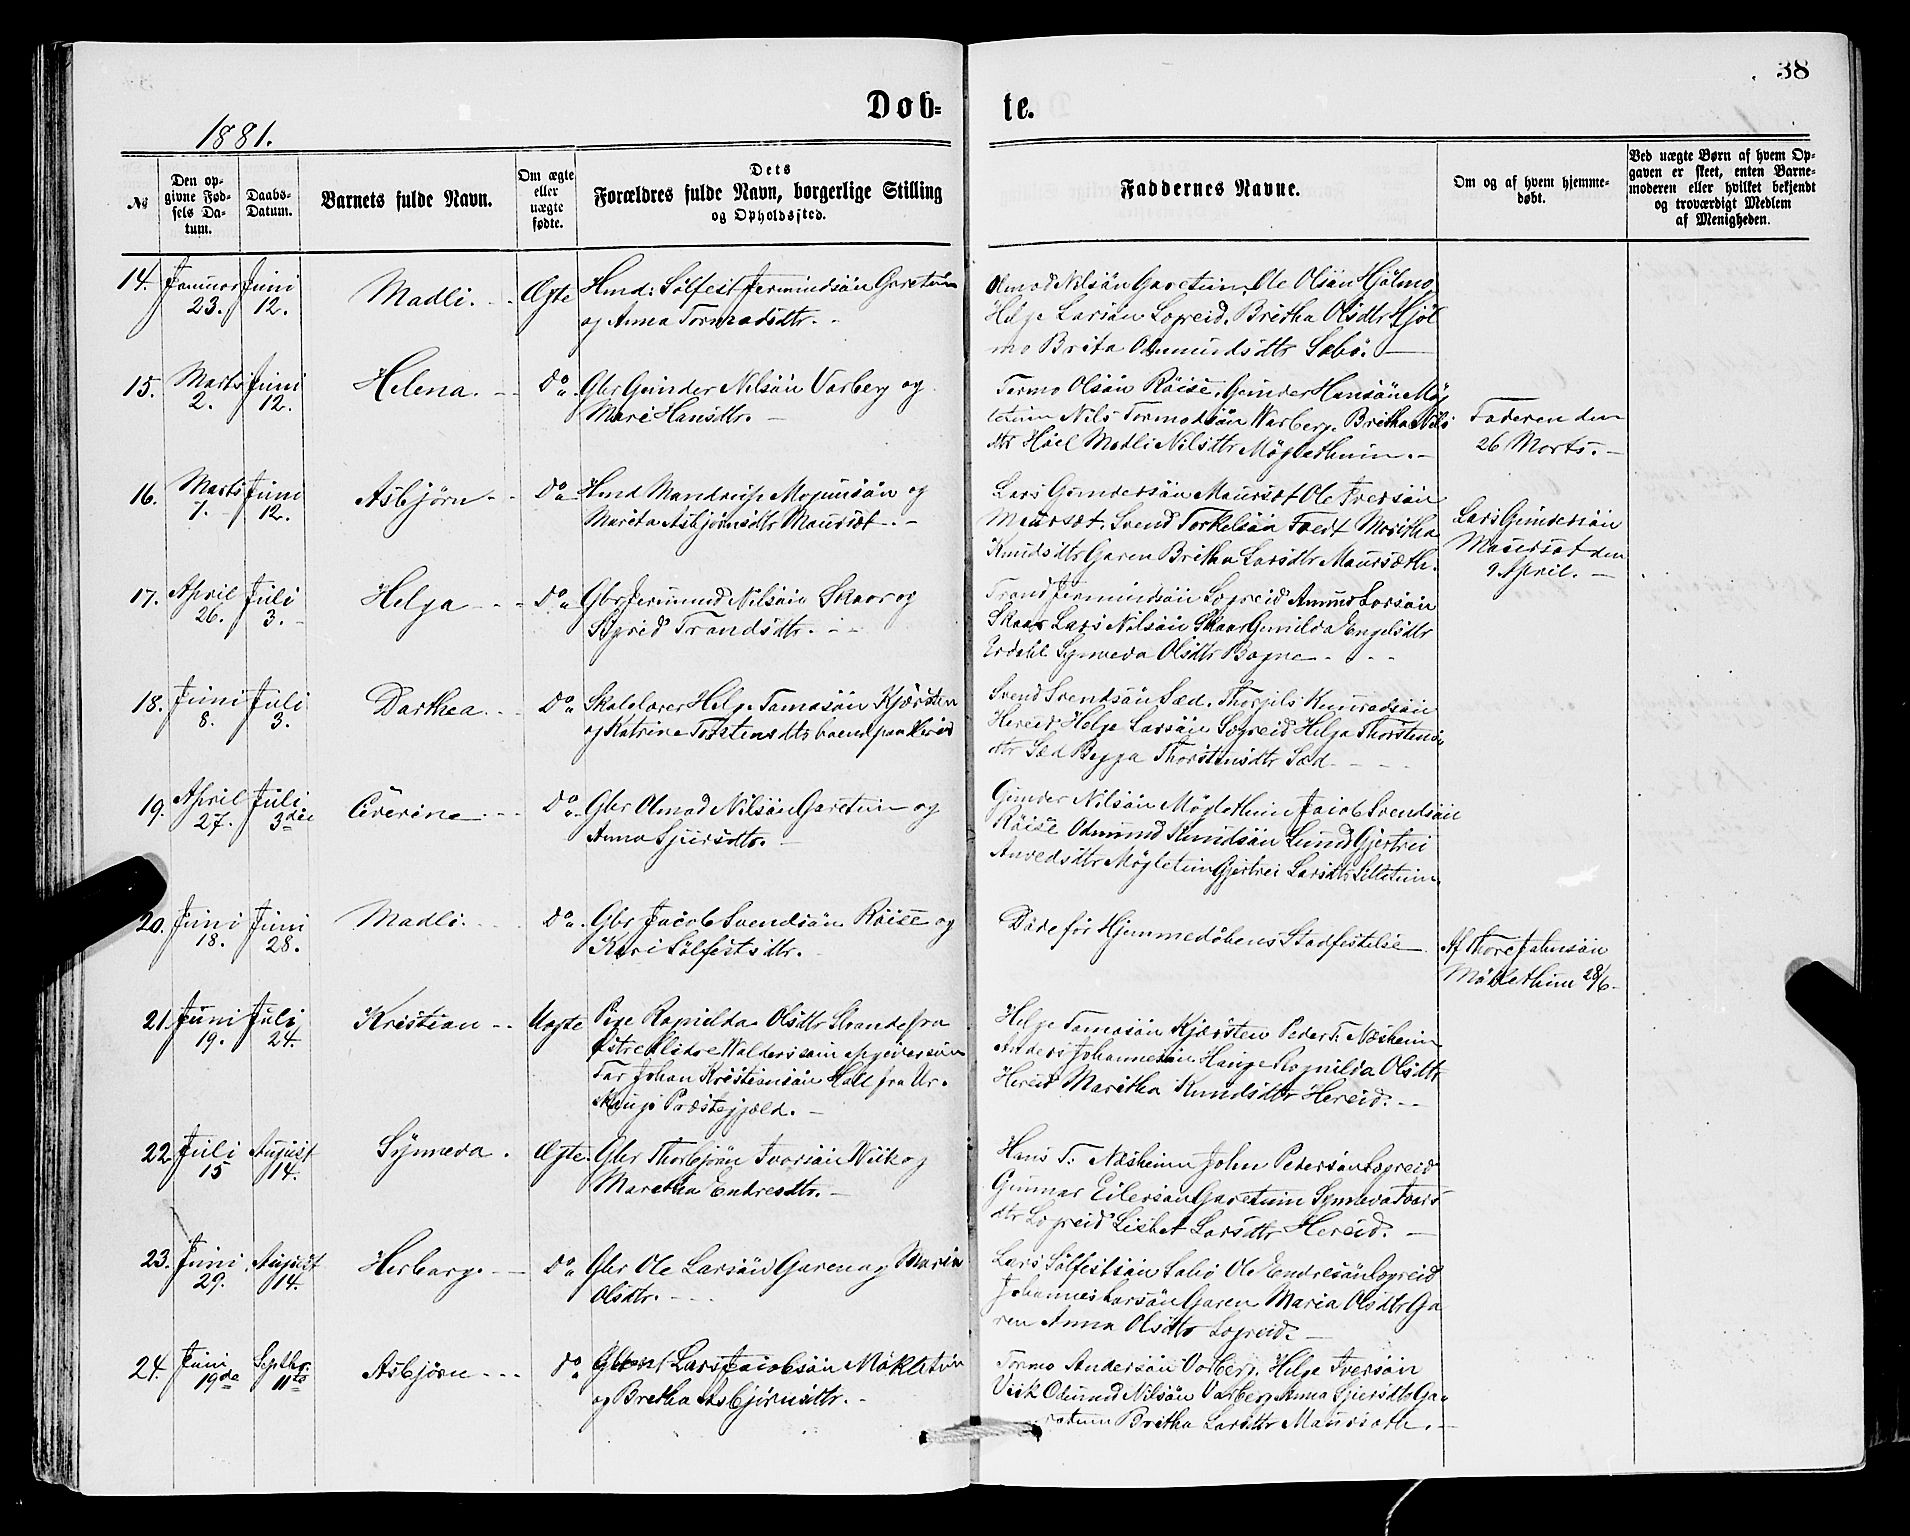 38
Döb-
te.
1881.
No
Den op-
givne Fød-
sels Da-
tum.
Daabs-
Datum.
Barnets fulde Navn.
Om ægte
eller
uægte
fødte.
Dets
Forældres fulde Navn, borgerlige Stilling
og Opholdssted.
Faddernes Navne.
Om og af hvem hjemme-
døbt.
Ved uægte Børn af hvem Op-
gaven er skeet, enten Barne-
moderen eller hvilket bekjendt
og troværdigt Medlem
af Menigheden.
14. Januar Juni
23. 12.
Madli. Ægte
Hmd: Sölfest Jermundsön Garetun
og Anna Tormodsdtr.
Olmod Nilsön Garetun, Ole Olsön Hjölmo,
Helge Larsön Legreid, Britha Olsdtr Hjöl
mo Brita Odmundsdtr Sæbö.
15. Marts Juni
2. 12.
Helena. Do
Gbr Gunder Nilsön Varberg og
Mari Hansdtr.
Tormo Olsön Röise, Gunder Hansön Mög
letun Nils Tormodsön Varberg, Britha Nils
dtr Höel Madli Nilsdtr Möglethun.
Faderen den
26 Marts.
16. Marts Juni
7. 12.
Asbjörn Do
Hmd Mandrup Mogunsön og
Marita Asbjörnsdtr Maursæt.
Lars Gundersön Maursæt Ole Iversön
Maursæt, Svend Torkelsön Tvedt Maritha
Knudsdtr Garen Britha Larsdtr Maursæth.
Lars Gundersön
Maursæt den
9 April.
17. April Juli
26. 3.
Helga Do
Gbr Jermund Nilsön Skaar og
Sigrid Trondsdtr.
Trond Jermundsön Legreid Amund Larsön
Skaar Lars Nilsön Skaar Gunilda Engelsdtr
Erdahl Synneva Olsdtr Bagne
18. Juni Juli
8. 3.
Darthea. Do
Skolelærer Helge Tomasön Kjærsten
og Katrine Torstensdtr boend paa Hereid
Svend Svendsön Sæd, Thorgils Knudsön
Hereid Helge Larsön Legreid Helga Thorstens
dtr Sæd Begga Thorstensdtr Sæd
19. April Juli
27. 3die
Severine Do
Gbr Olmod Nilsön Garetun og
Anna Sjursdtr.
Gunder Nilsön Möglethun Jacob Svendsön
Röise Odmund Knudsön Lund Gjertrei
Amedsdtr Mögletun Gjertrei Larsdtr Lilletun
20. Juni Juni
18. 28.
Madli. Do
Gbr Jacob Svendsön Röise og
Kari Sölfestsdtr.
Döde för Hjemmedöbens Stadfestelse
Af Thore Johnsön
Möklethun 28/6
21. Juni Juli
19. 24.
Kristian Uægte
Pige Ragnilda Olsdtr Strande fra
Östre Slidre Walders som opgiver som
Far Johan Kristiansön Holt fra Ur-
skougs Præstegjæld.
Helge Tomasön Kjærsten Peder T. Næsheim
Anders Johannesön Hauge Ragnilda Olsdtr
Hereid Maritha Knudsdtr Hereid.
22. Juli August
15 14.
Synneva. Ægte.
Gbr Thorbjörn Ivarsön Viik og
Maretha Endresdtr.
Hans T. Næsheim John Pedersön Legreid
Gunnar Eilersön Garetun Synneva Ivars
dtr Legreid Lisbet Larsdtr Hereid.
23. Juni August
29. 14.
Herborg. Do
Gbr Ole Larsön Garen og Maria
Olsdtr.
Lars Sölfestsön Sæbö Ole Endresön Legreid
Johannes Larsön Garen Maria Olsdtr Ga
ren Anna Olsdtr Legreid.
24. Juni Septbr
19de 11te
Asbjörn Do
Lars Jacobsön Mökletun
og Bretha Asbjörnsdtr.
Tormo Andersön Varberg, Helge Iversön
Viik Odmund Nilsön Varberg Anna Sjursdtr Ga
retun Britha Larsdtr Maursæth.